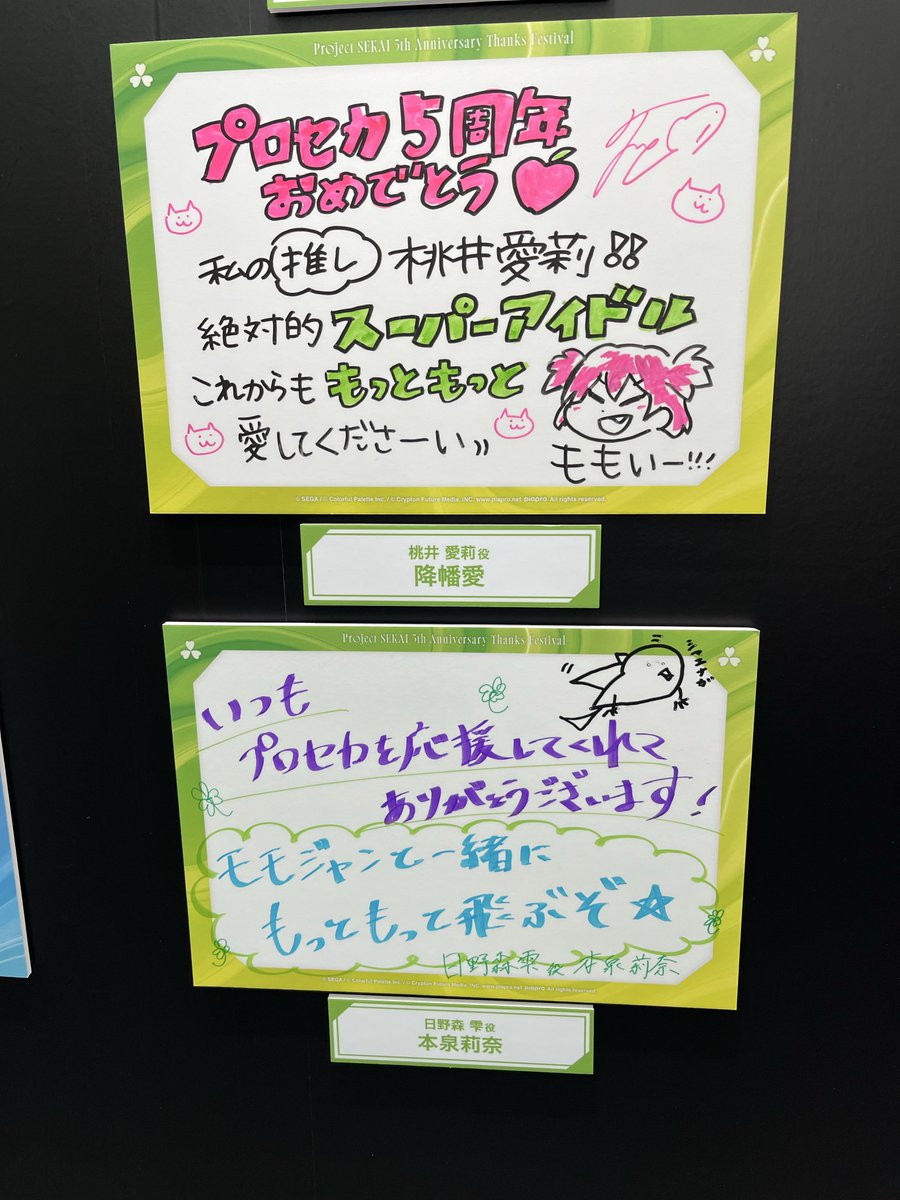 Project SEKAI 5th Anniversary Thanks Festival
プロセカ5周年
おめでとう
私の推し 桃井愛莉!!
絶対的スーパーアイドル
これからももっともっと
愛してくださーい〃
ももいー!!!
© SEGA / © Colorful Palette Inc. / © Crypton Future Media, INC. www.piapro.net piapro All rights reserved.
桃井 愛莉役
降幡愛
Project SEKAI 5th Anniversary Thanks Festival
いつも
プロセカを応援してくれて
ありがとうございます!
モモジャンと一緒に
もっともっと飛ぶぞ☆
日野森雫役 本泉莉奈
© SEGA / © Colorful Palette Inc. / © Crypton Future Media, INC. www.piapro.net piapro All rights reserved.
日野森 雫役
本泉莉奈